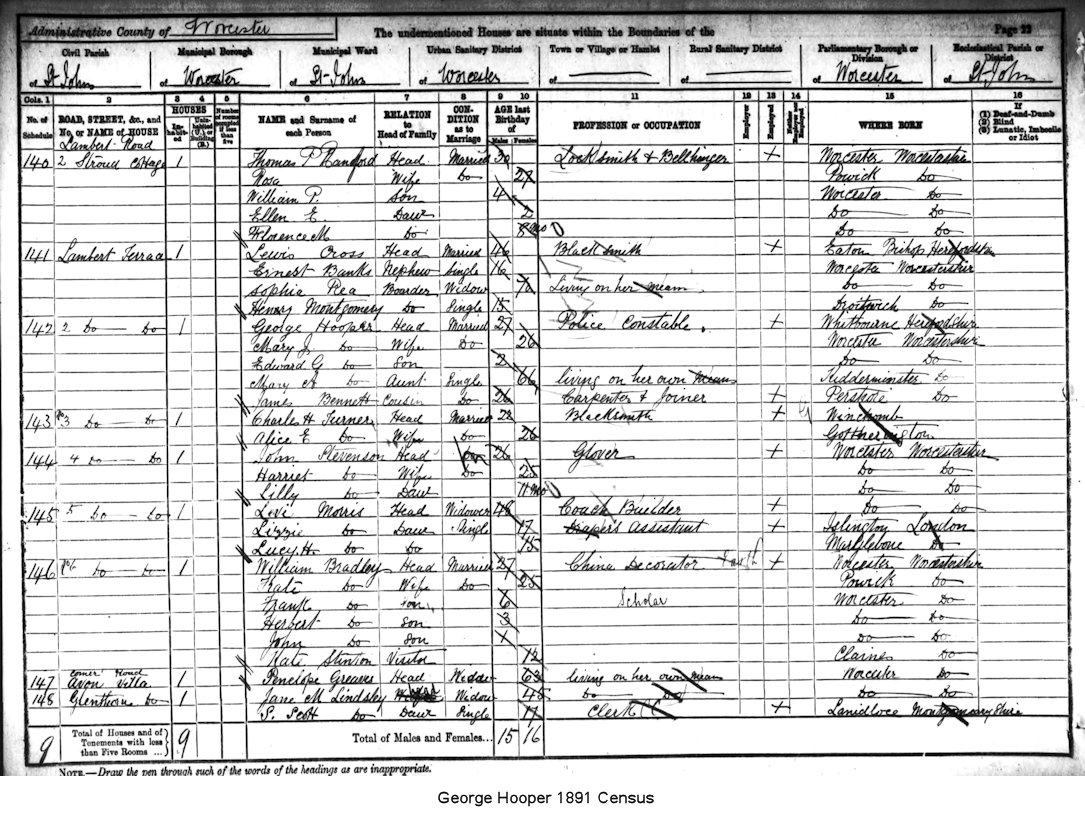 Administrative County of Worcester The undermentioned Houses are situate within the Boundaries of the Page 22
Civil Parish Municipal Borough Municipal Ward Urban Sanitary District Town or Village or Hamlet Rural Sanitary District Parliamentary Borough or Division Ecclesiastical Parish or District
of St Johns of Worcester of St Johns of Worcester of of of Worcester of St Johns
Cols. 1 2 3 4 5 6 7 8 9 10 11 12 13 14 15 16
No. of Schedule ROAD, STREET, &c., and No. or NAME of HOUSE HOUSES Inhabited Uninhabited (U.) or Building (B.) Number of rooms occupied if less than five NAME and Surname of each Person RELATION to Head of Family CONDITION as to Marriage AGE last Birthday of Males Females PROFESSION or OCCUPATION Employer Employed Neither Employer nor Employed WHERE BORN If (1) Deaf-and-Dumb (2) Blind (3) Lunatic, Imbecile or Idiot
Lambert Road
140 2 Stroud Cottage 1 Thomas P Head Married 30 Locksmith & Bellhanger X Worcester Worcestershire
Rosa Wife Do 27 Powick Do
William P. Son 4 Worcester Do
Ellen E. Daur 2 Do Do
Florence M Do 8 mo Do Do
141 Lambert Terrace 1 Lewis Cross Head Married 46 Blacksmith X Eaton Bishop Herefordshire
Ernest Banks Nephew Single 16 Worcester Worcestershire
Sophia Rea Boarder Widow 70 Living on her means Do Do
Henry Montgomery Do Single 15 Droitwich Do
142 2 Do Do 1 George Hooper Head Married 27 Police Constable X Whitbourne Herefordshire
Mary J. Do Wife Do 26 Worcester Worcestershire
Edward G Do Son 2 Do Do
Mary A Do Aunt Single 66 living on her own means Kidderminster Do
James Bennett Cousin Do 26 Carpenter & Joiner X Pershore Do
143 No 3 Do Do 1 Charles H Turner Head Married 28 Blacksmith X Winchcomb
Alice E Do Wife Do 26 Gotherington
144 4 Do Do 1 John Stevenson Head Do 26 Glover X Worcester Worcestershire
Harriet Do Wife Do 25 Do Do
Lilly Do Daur 11 mo Do Do
145 5 Do Do 1 Levi Morris Head Widower 48 Coach Builder X Do Do
Lizzie Do Daur Single 17 Drapers Assistant X Islington London
Lucy H. Do Do 15 Marylebone Do
146 No 6 Do Do 1 William Bradley Head Married 27 China Decorator X Worcester Worcestershire
Kate Do Wife Do 25 Powick Do
Frank Do Son 6 Scholar Worcester Do
Herbert Do Son 3 Do Do
John Do Son 1 Do Do
Kate Stinton Visitor 12 Claines Do
147 Avon Villa 1 Penelope Greaves Head Widow 63 living on her own means Worcester Do
148 Glenthorn Do 1 Jane M Lindsley Widow 45 Do Do Do Do
S. Scott Do Daur Single 17 Clerk X Montgomeryshire
9 Total of Houses and of Tenements with less than Five Rooms ... 9 Total of Males and Females... 15 16
NOTE.—Draw the pen through such of the words of the headings as are inappropriate.
George Hooper 1891 Census